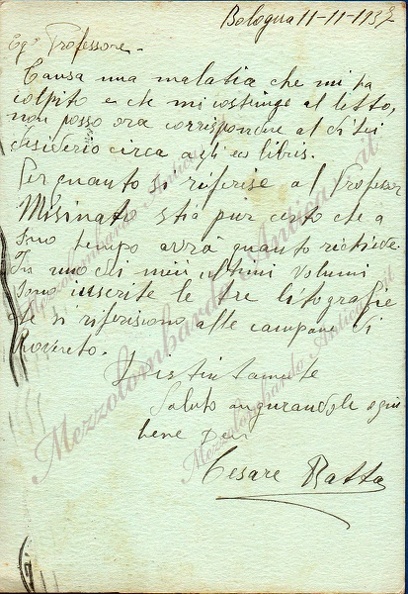 Bologna 11-11-1937
Eg. Professore -
Causa una malatia che mi ha
colpito e che mi costringe al letto,
non posso ora corrispondere al di lei
desiderio circa agli ex libris.
Per quanto si riferise al Professor
Misinato stia pur certo che a
suo tempo avrà quanto richiede.
In uno dei miei ultimi volumi
sono inserite le tre litografie
che si riferiscono alle campane di
Rovereto.
Distintamente
Saluto augurandole ogni
bene
Cesare Ratta
Mezzolombardo Anticart.it